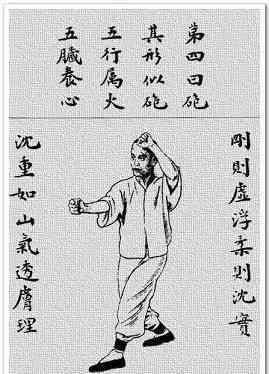 第四曰砲
其形似砲
五行属火
五臟養心
剛則虛浮柔則沈實
沈重如山氣透膚理